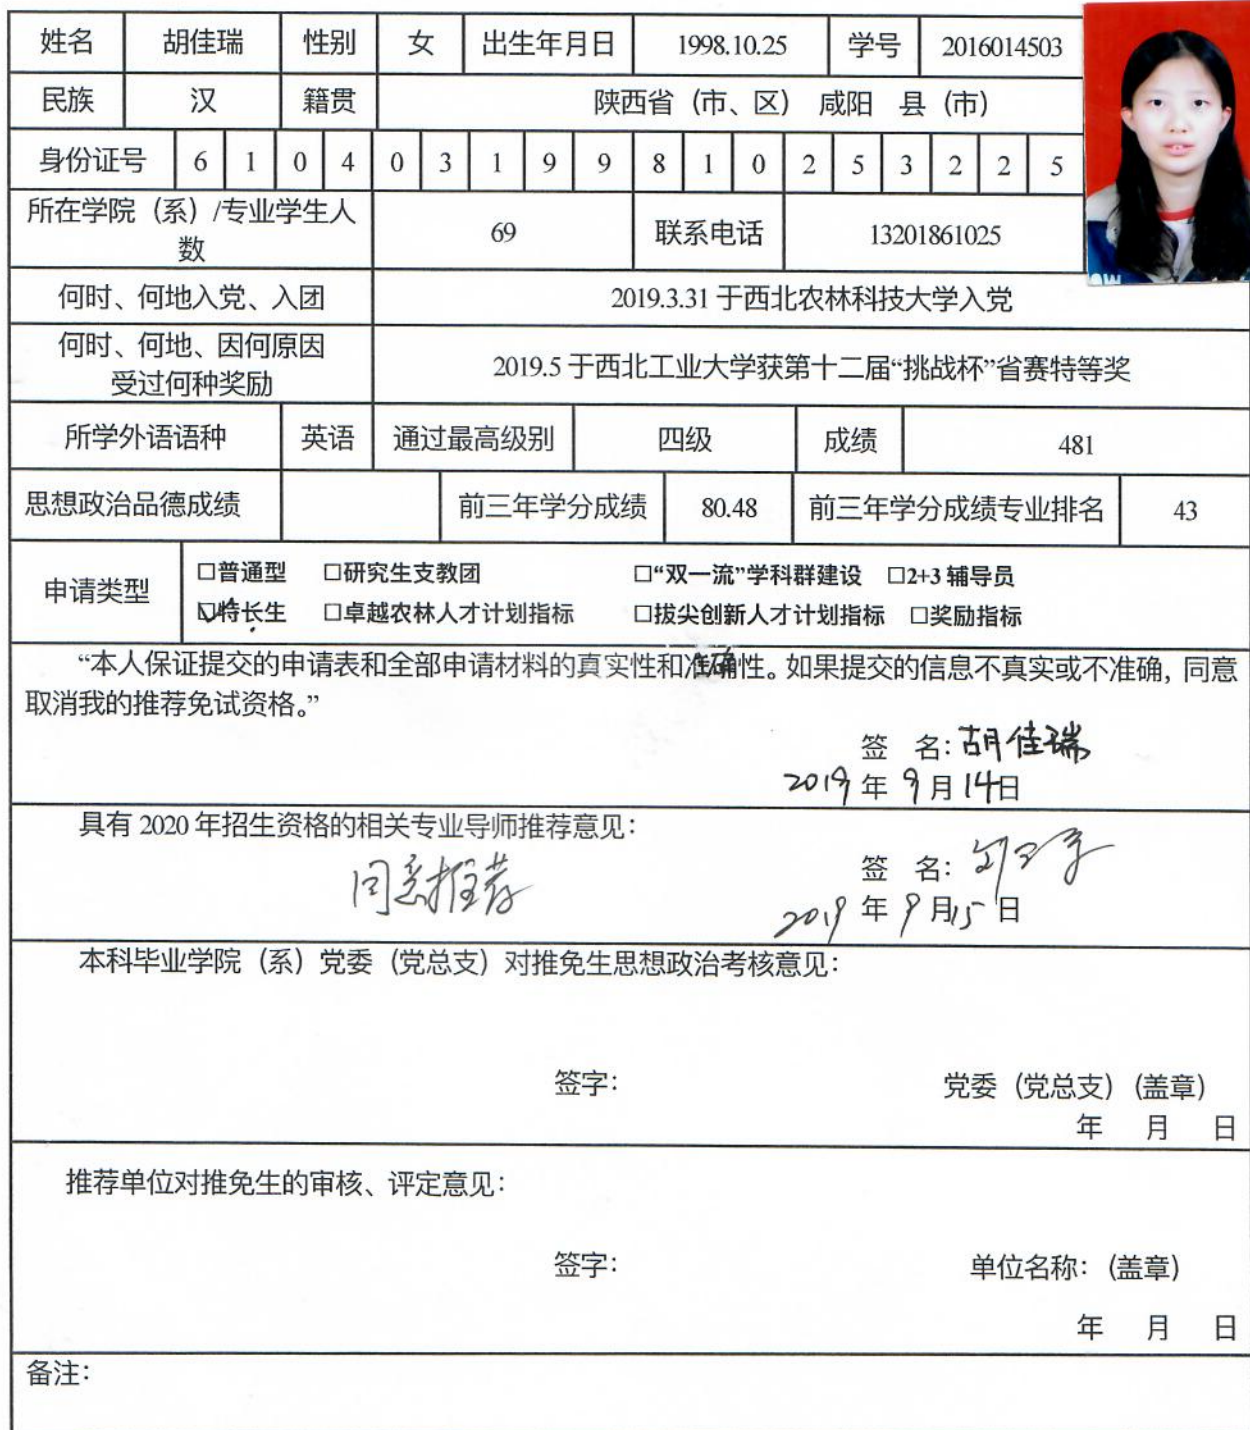 姓名 胡佳瑞 性别 女 出生年月日 1998.10.25 学号 2016014503
民族 汉 籍贯 陕西省（市、区） 咸阳 县（市）
身份证号 6 1 0 4 0 3 1 9 9 8 1 0 2 5 3 2 2 5
所在学院（系）/专业学生人
数 69 联系电话 13201861025
何时、何地入党、入团 2019.3.31 于西北农林科技大学入党
何时、何地、因何原因
受过何种奖励 2019.5 于西北工业大学获第十二届“挑战杯”省赛特等奖
所学外语语种 英语 通过最高级别 四级 成绩 481
思想政治品德成绩 前三年学分成绩 80.48 前三年学分成绩专业排名 43
申请类型 □普通型 □研究生支教团 □“双一流”学科群建设 □2+3 辅导员
☑特长生 □卓越农林人才计划指标 □拔尖创新人才计划指标 □奖励指标
“本人保证提交的申请表和全部申请材料的真实性和准确性。如果提交的信息不真实或不准确，同意
取消我的推荐免试资格。”
签 名：胡佳瑞
2019 年 9 月 14 日
具有 2020 年招生资格的相关专业导师推荐意见：
同意推荐 签 名：
2019 年 9 月 15 日
本科毕业学院（系）党委（党总支）对推免生思想政治考核意见：
签字： 党委（党总支）（盖章）
年 月 日
推荐单位对推免生的审核、评定意见：
签字： 单位名称：（盖章）
年 月 日
备注：